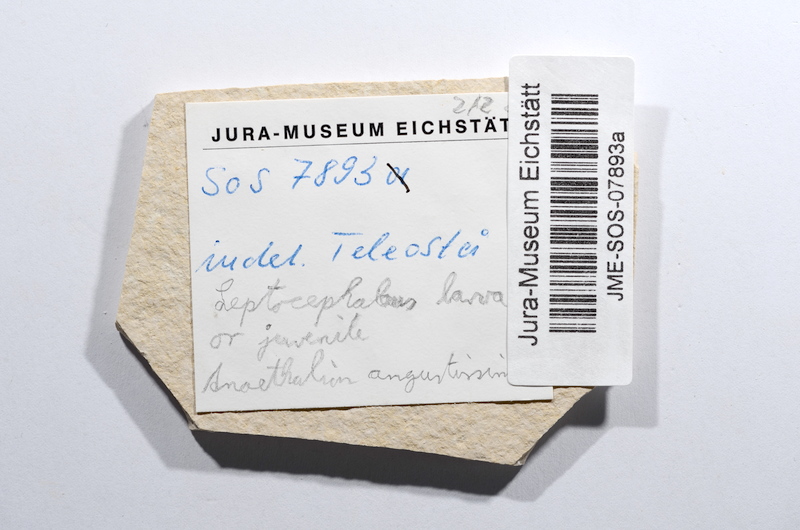 212
JURA-MUSEUM EICHSTÄT
SOS 7893a
indet. Teleostei
Leptocephalus larva
or juvenile
Anaethalion angustissim
Jura-Museum Eichstätt
JME-SOS-07893a